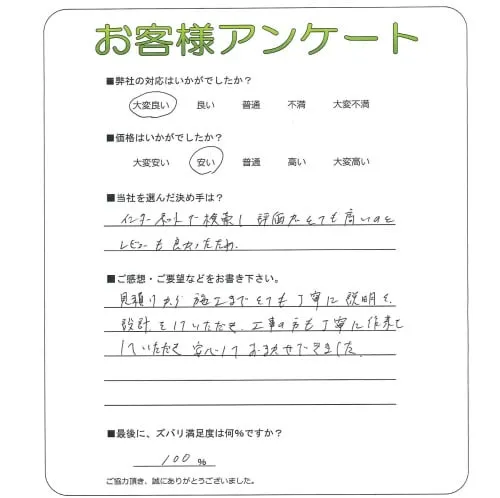 お客様アンケート
■弊社の対応はいかがでしたか？
大変良い 良い 普通 不満 大変不満
■価格はいかがでしたか？
大変安い 安い 普通 高い 大変高い
■当社を選んだ決め手は？
インターネットで検索し 評価がとても高いのと
レビューも良かったため。
■ご感想・ご要望などをお書き下さい。
見積りから 施工まで とても 丁寧に 説明を、
設計をしていただき、工事の方も丁寧に作業を
していただき 安心して おまかせできました。
■最後に、ズバリ満足度は何％ですか？
100 %
ご協力頂き、誠にありがとうございました。